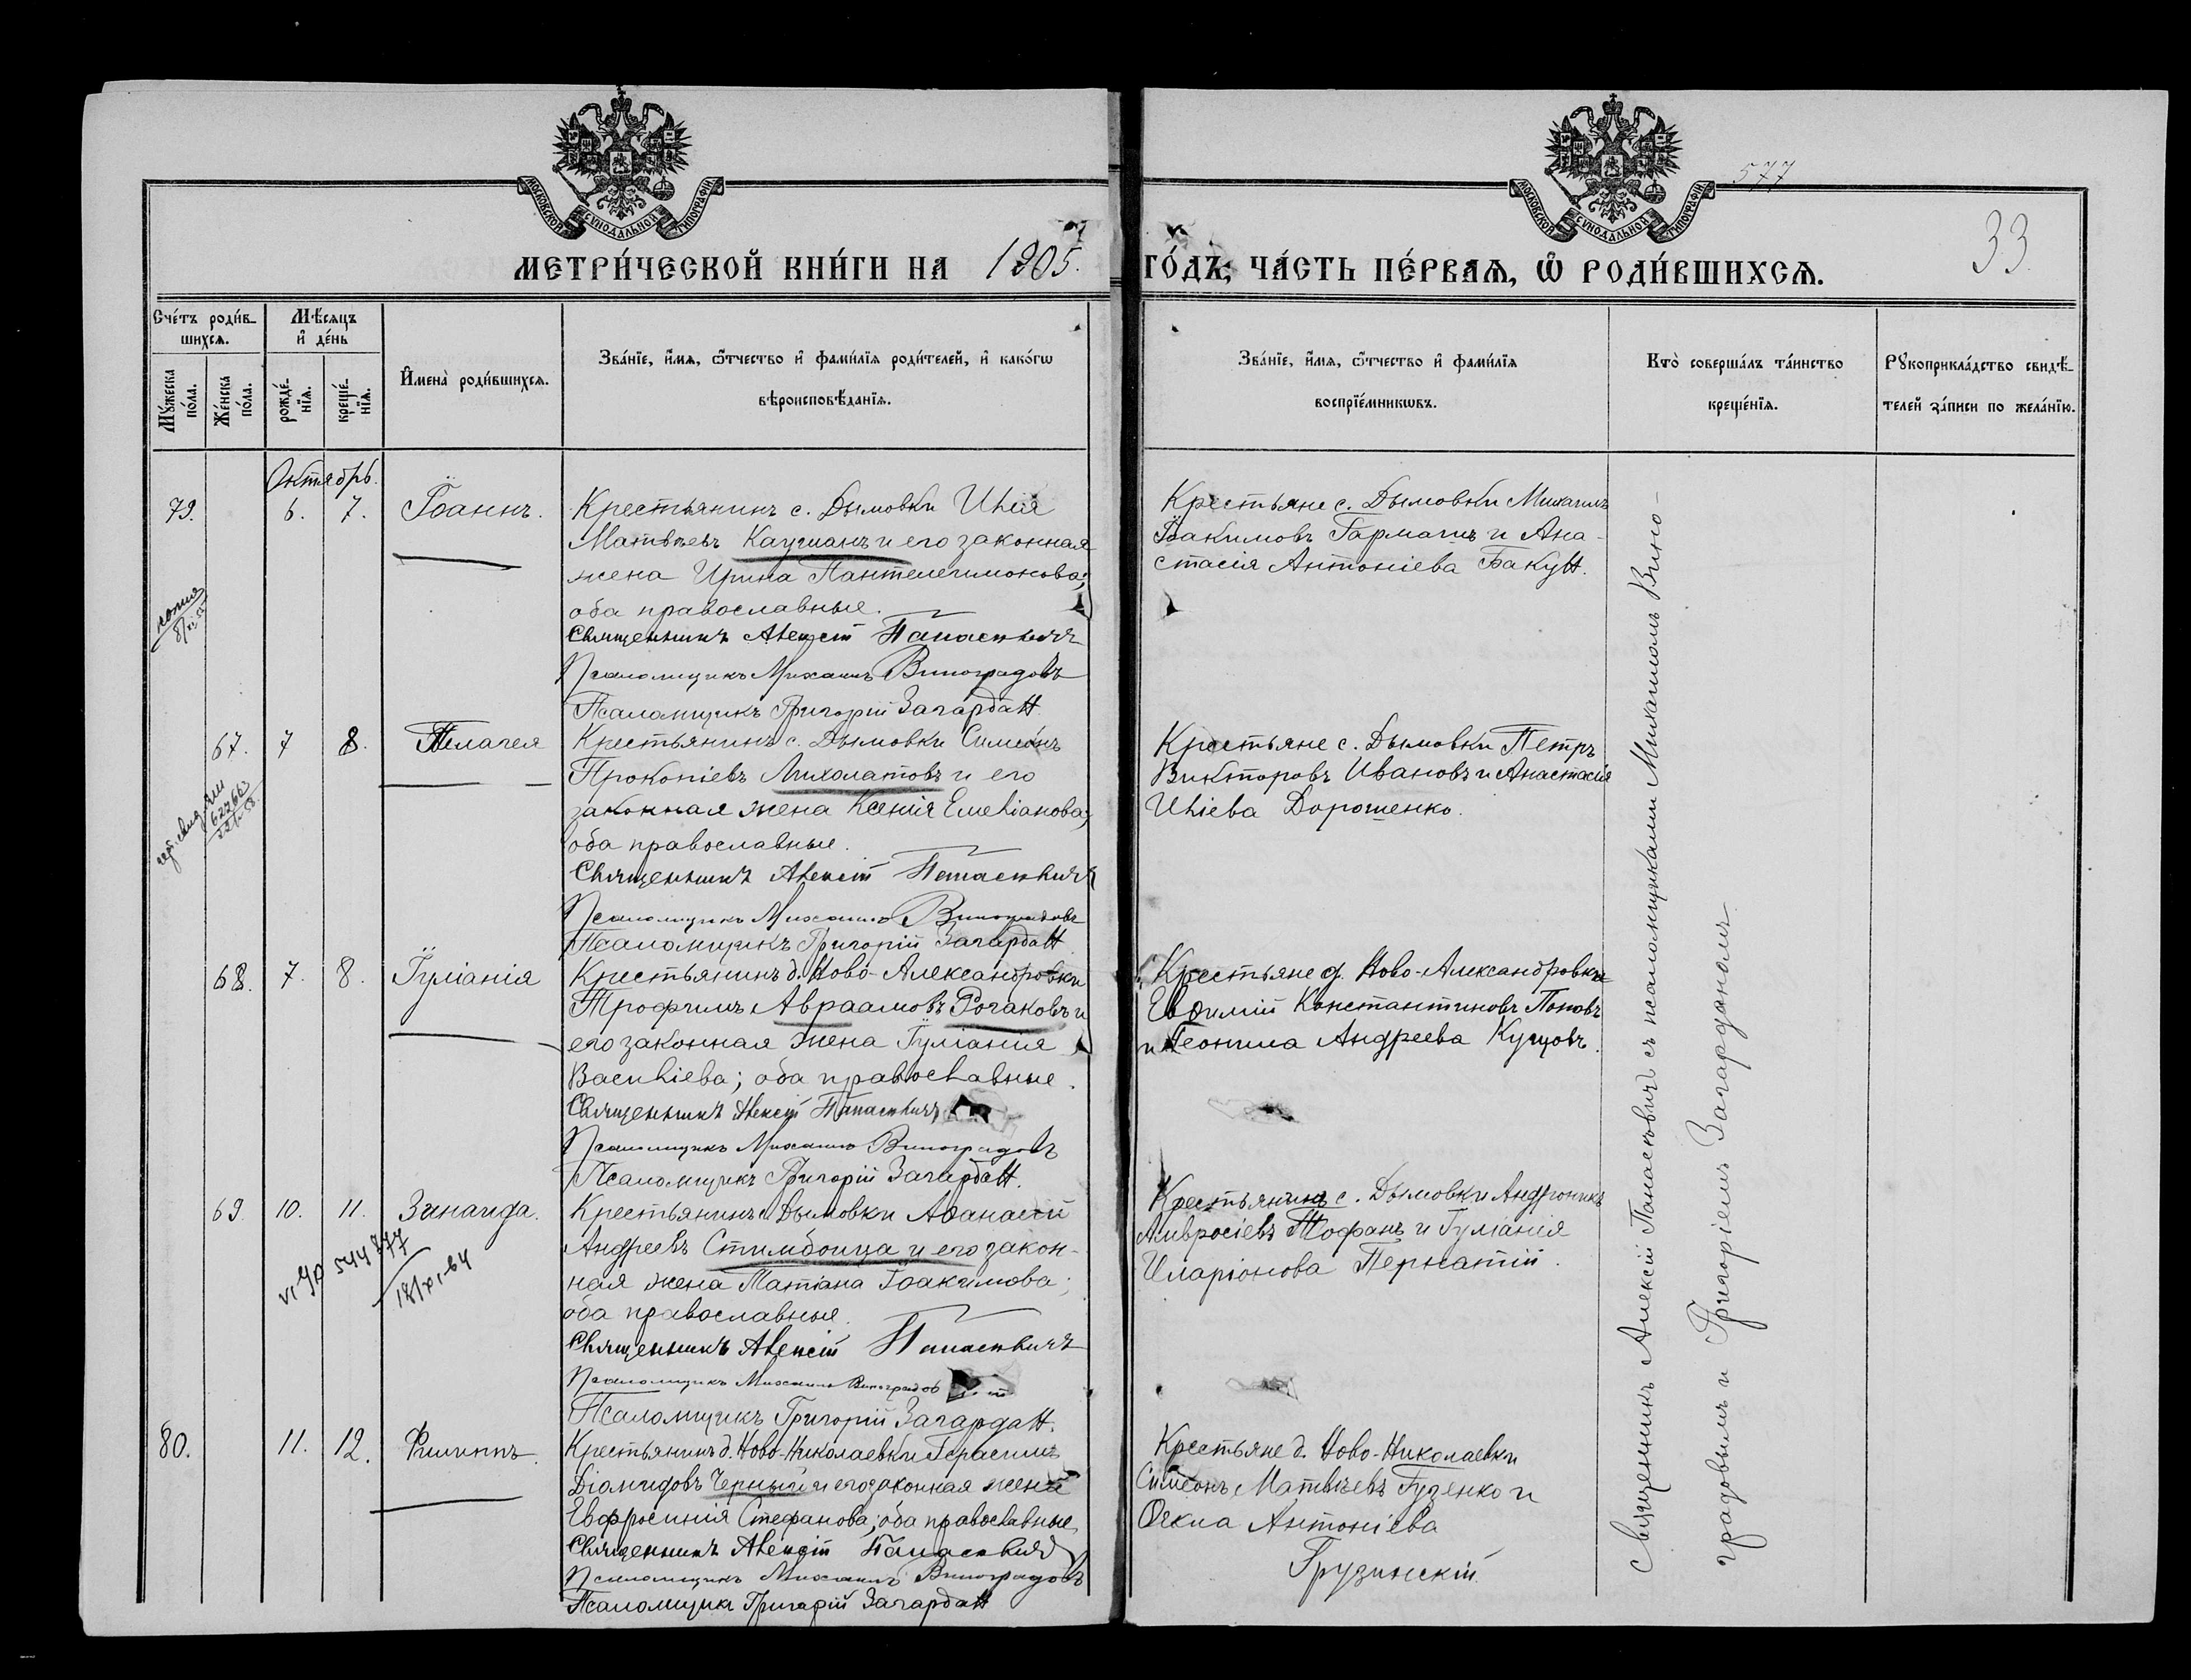 577
33
МОСКОВСКОЙ СУНОДАЛЬНОЙ ТИПОГРАФІИ
МОСКОВСКОЙ СУНОДАЛЬНОЙ ТИПОГРАФІИ
МЕТРИ́ЧЕСКОЙ КНИ́ГИ НА 1905. ГО́ДЪ, ЧА́СТЬ ПЕ́РВАЯ, Ѡ РОДИ́ВШИХСЯ.
Сче́тъ роди́в-
шихся.
Му́жеска по́ла.
Же́нска по́ла.
Мѣ́сяцъ
и҆ де́нь
рожде́-
нїя.
креще́-
нїя.
И҆мена̀ роди́вшихся.
Зва́нїе, и҆́мя, ѻ҆́тчество и҆ фами́лїя роди́телей, и҆ како́гѡ
вѣроисповѣ́данїя.
Зва́нїе, и҆́мя, ѻ҆́тчество и҆ фами́лїя
воспрїе́мникѡвъ.
Кто̀ соверша́лъ та́инство
креще́нїя.
Рꙋкоприкла́дство свидѣ́-
телей за́писи по жела́нїю.
Октябрь.
79. 6. 7. Іоаннъ.
Крестьянинъ с. Дымовки Илія
Матвѣевъ Каушанъ и его законная
жена Ирина Пантелеимонова;
оба православные.
Священникъ Алексій Панаскевичъ
Псаломщикъ Михаилъ Виноградовъ
Псаломщикъ Григорій Загарданъ
Крестьяне с. Дымовки Михаилъ
Іоакимовъ Гармашъ и Ана-
стасія Антоніева Бакун.
копия
67. 7 8. Пелагея
Крестьянинъ с. Дымовки Симеонъ
Прокопіевъ Лихолатовъ и его
законная жена Ксенія Емеліанова;
оба православные.
Священникъ Алексій Панаскевичъ
Псаломщикъ Михаилъ Виноградовъ
Псаломщикъ Григорій Загардан
Крестьяне с. Дымовки Петръ
Викторовъ Ивановъ и Анастасія
Иліева Дорошенко.
68. 7. 8. Іуліанія
Крестьянинъ д. Ново-Александровки
Трофимъ Авраамовъ Рогаковъ и
его законная жена Іуліанія
Василіева; оба православные.
Священникъ Алексій Панаскевичъ
Псаломщикъ Михаилъ Виноградовъ
Псаломщикъ Григорій Загардан.
Крестьяне д. Ново-Александровки
Евѳимій Константиновъ Поповъ
и Леонила Андреева Купцовъ.
69. 10. 11. Зинаида.
Крестьянинъ с. Дымовки Аѳанасій
Андреевъ Стимбоица и его закон-
ная жена Татіана Іоакимова;
оба православные.
Священникъ Алексій Панаскевичъ
Псаломщикъ Михаилъ Виноградовъ
Псаломщикъ Григорій Загардан.
Крестьянинъ с. Дымовки Андроникъ
Амвросіевъ Тофанъ и Іуліанія
Иларіонова Пернатій.
544777
18/XI-64
80. 11. 12. Филиппъ.
Крестьянинъ д. Ново-Николаевки Герасимъ
Діомидовъ Черный и его законная жена
Евфросинія Стефанова; оба православные
Священникъ Алексій Панаскевичъ
Псаломщикъ Михаилъ Виноградовъ
Псаломщикъ Григорій Загардан
Крестьяне д. Ново-Николаевки
Симеонъ Матвѣевъ Гузенко и
Ѳекла Антоніева
Грузинскій.
Священникъ Алексій Панаскевичъ съ псаломщиками Михаиломъ Вино-
градовымъ и Григоріемъ Загарданомъ